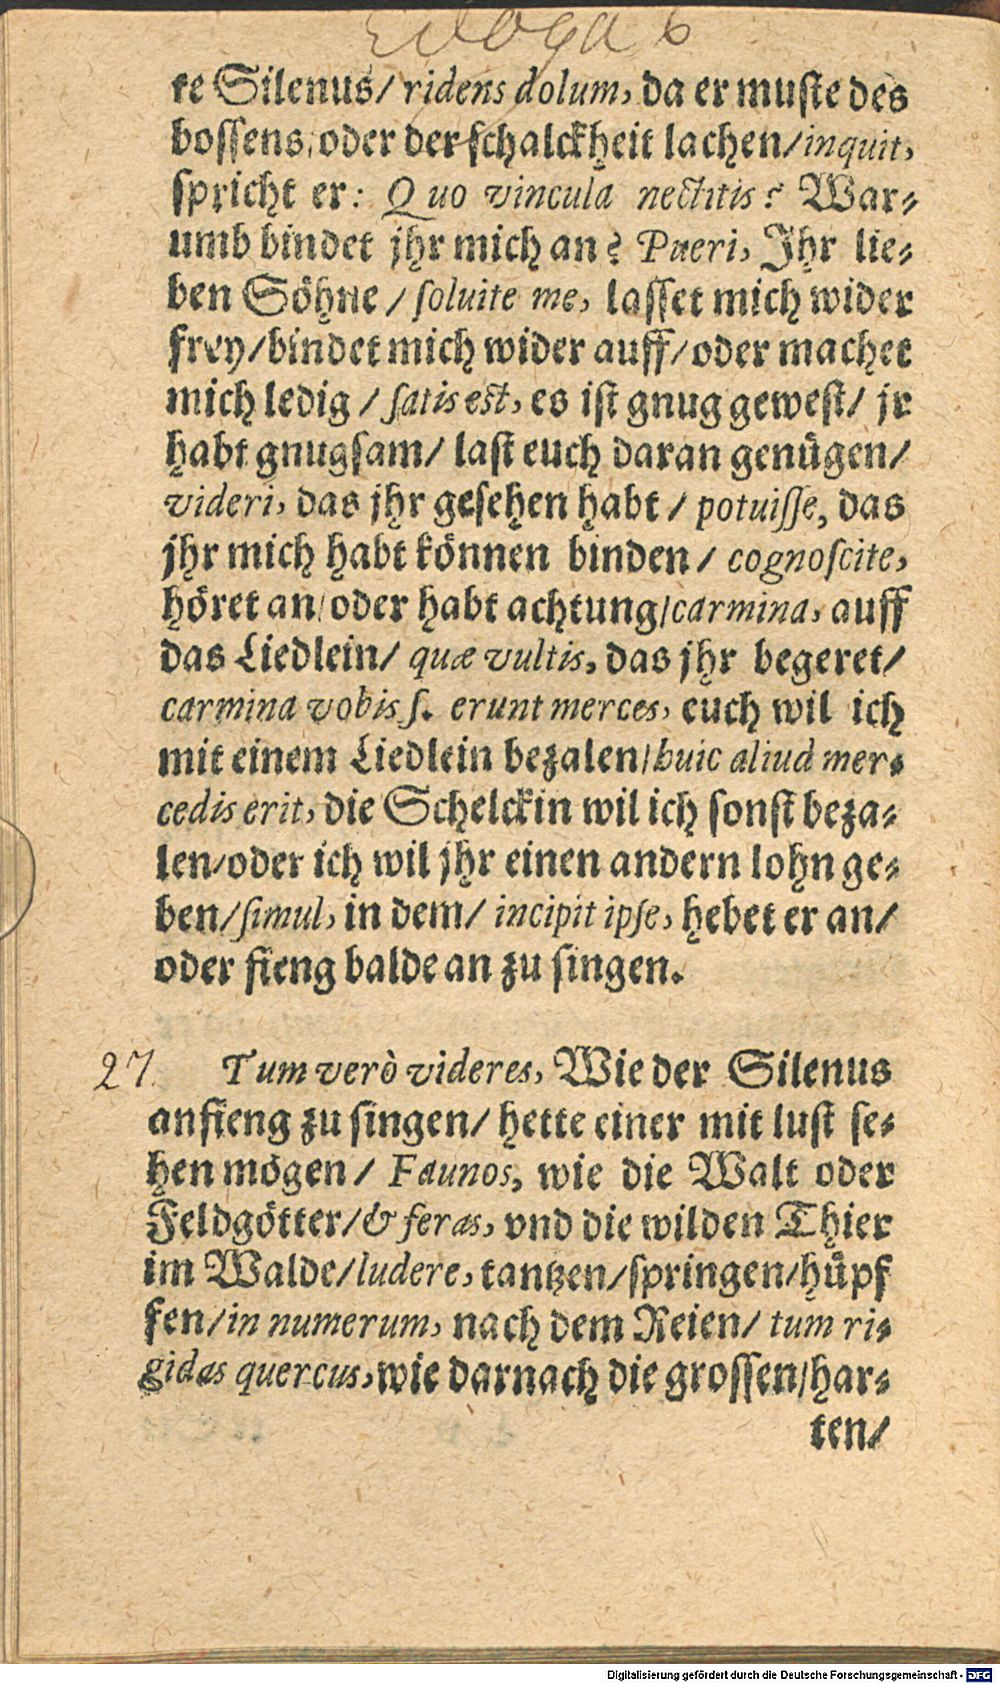 Ecloga 6
te Silenus/ ridens dolum, da er muste des
bossens, oder der schalckheit lachen/ inquit,
spricht er: Quo vincula nectitis? War-
umb bindet jhr mich an? Pueri, Jhr lie-
ben Söhne / soluite me, lasset mich wider
frey/ bindet mich wider auff/ oder machet
mich ledig / satis est, es ist gnug gewest/ jr
habt gnugsam/ last euch daran genügen/
videri, das jhr gesehen habt / potuisse, das
jhr mich habt können binden / cognoscite,
höret an/ oder habt achtung/ carmina, auff
das Liedlein/ quæ vultis, das jhr begeret/
carmina vobis s. erunt merces, euch wil ich
mit einem Liedlein bezalen/ huic aliud mer-
cedis erit, die Schelckin wil ich sonst beza-
len/ oder ich wil jhr einen andern lohn ge-
ben/ simul, in dem/ incipit ipse, hebet er an/
oder fieng balde an zu singen.
27. Tum verò videres, Wie der Silenus
anfieng zu singen/ hette einer mit lust se-
hen mögen / Faunos, wie die Walt oder
Feldgötter/ & feras, vnd die wilden Thier
im Walde/ ludere, tantzen/ springen/ hüpf
fen/ in numerum, nach dem Reien/ tum ri-
gidas quercus, wie darnach die grossen/ har-
ten/
Digitalisierung gefördert durch die Deutsche Forschungsgemeinschaft - DFG